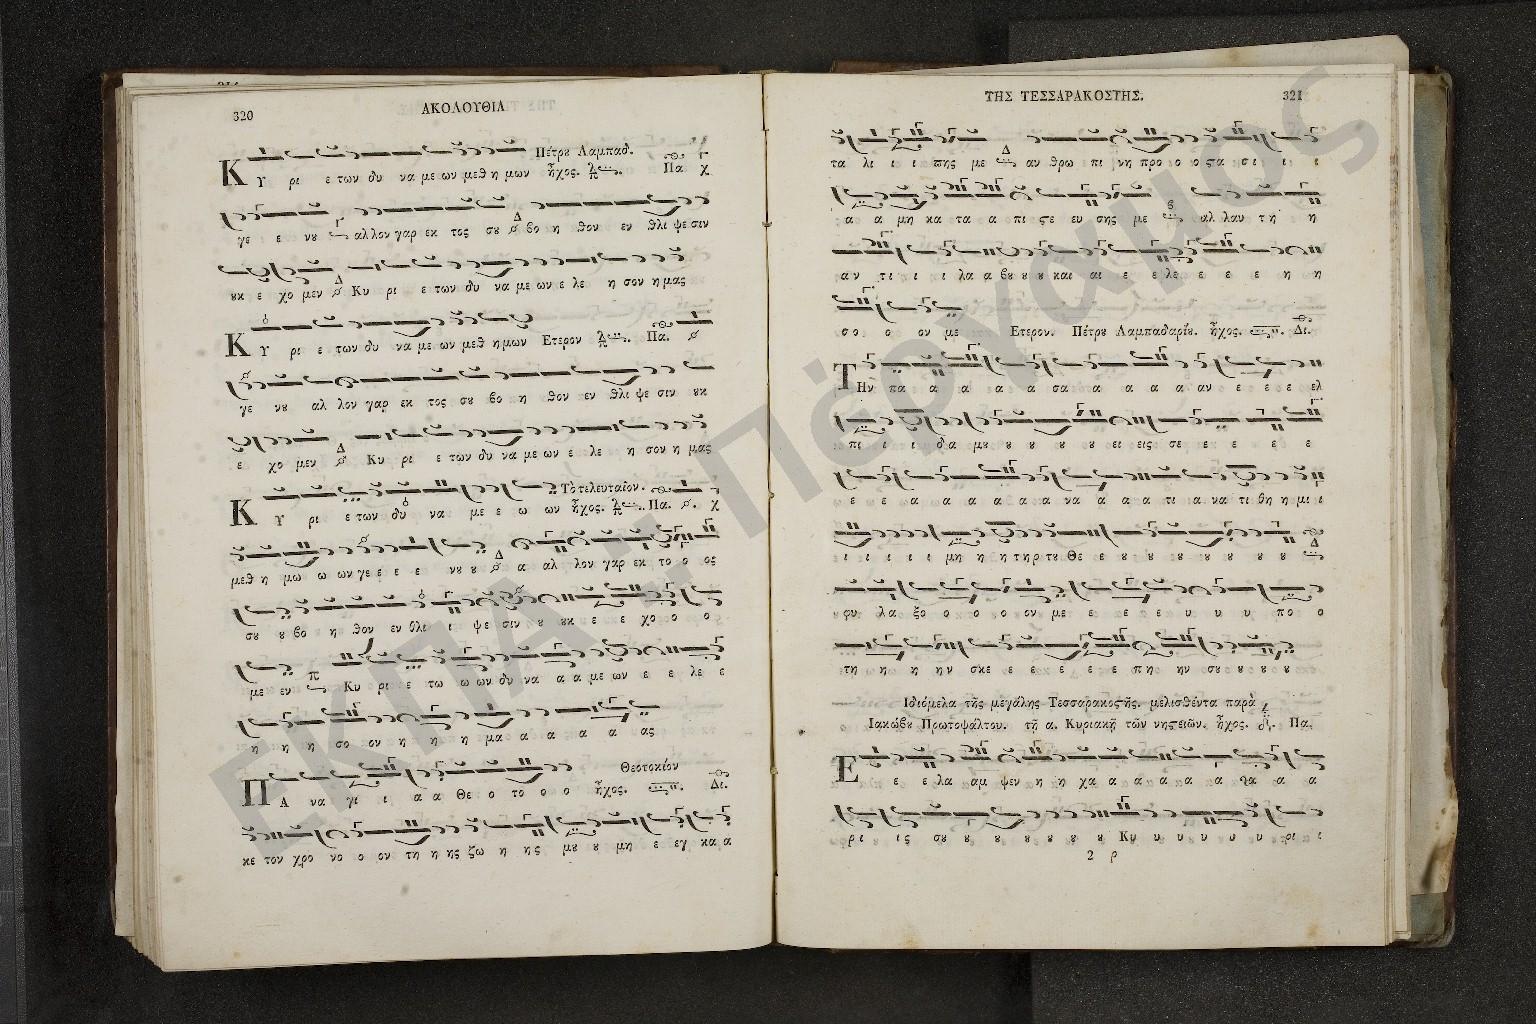 320
ΑΚΟΛΟΥΘΙΑ
Πέτρȣ Λαμπαδ.
Κ υ ρι ε των δυ να με ων μεθ η μων ἦχος. Πα χ
γε ε νȣ αλ λον γαρ εκ τος σȣ βο η θον εν θλι ψε σιν
ȣκ ε χο μεν Κυ ρι ε των δυ να με ων ε λε η σον η μας
Κ υ ρι ε των δυ να με ων μεθ η μων Ετερον Πα.
γε νȣ αλ λον γαρ εκ τος σȣ βο η θον εν θλι ψε σιν ȣκ
ε χο μεν Κυ ρι ε των δυ να με ων ε λε η σον η μας
Τὸ τελευταῖον.
Κ υ ρι ε των δυ να με ε ω ων ἦχος. Πα. χ
μεθ η μω ω ων γε ε ε ε νȣ ȣ α αλ λον γαρ εκ το ο ος
σȣ ȣ βο η θον εν θλι ι ψε σιν ȣ ȣκ ε ε χο ο ο
με εν Κυ ρι ε τω ω ων δυ να α α με ων ε ε λε ε
η η η σο ον η η η μα α α α α ας
Θεοτοκίον
Π Α να γι ι α α Θε ο το ο ο ἦχος. Δι.
κε τον χρο νο ο ον τη η ης ζω η ης μȣ ȣ μη ε εγ κα α
ΤΗΣ ΤΕΣΣΑΡΑΚΟΣΤΗΣ.
321
τα λι ι ι πης με αν θρω πι νη προ ο ο ϛα σι ι ι
α α μη κα τα α πι ϛε ευ σης με αλ λαν τη η
αν τι ι ι λα α βȣ ȣ ȣ και αι ε ε λε ε ε ε η η
σο ο ον με Ετερον. Πέτρȣ Λαμπαδαρίȣ. ἦχος. Δι.
Τ Ην πα α α α α σα α α α α αν ε ε ε ελ
πι ι ι δα μȣ ȣ ȣ ȣ ȣ ει εις σε ε ε ε ε
ε ε α α α α α α να α α α τι α να τι θη η μι ι
ι ι ι ι ι μη η η τηρ τȣ Θε ε ȣ ȣ ȣ ȣ ȣ ȣ ȣ
φυ λα ξο ο ο ο ον με ε ε ε υ υ υ πο ο
τη η η ην σκε ε ε ε ε ε πη ην σȣ ȣ ȣ ȣ
Ιδιόμελα τῆς μεγάλης Τεσσαρακοϛῆς. μελισθέντα παρὰ
Ιακώβȣ Πρωτοψάλτου. τῇ α. Κυριακῇ τῶν νηϛειῶν. ἦχος. Πα.
Ε ε ε λα αμ ψεν η η χα α α α α α α θα α α
ρι ι ις σȣ ȣ ȣ ȣ ȣ ȣ ȣ Κυ υ υ υ υ υ ρι ι
2 ρ
ΕΠΑ : Πέργαμος